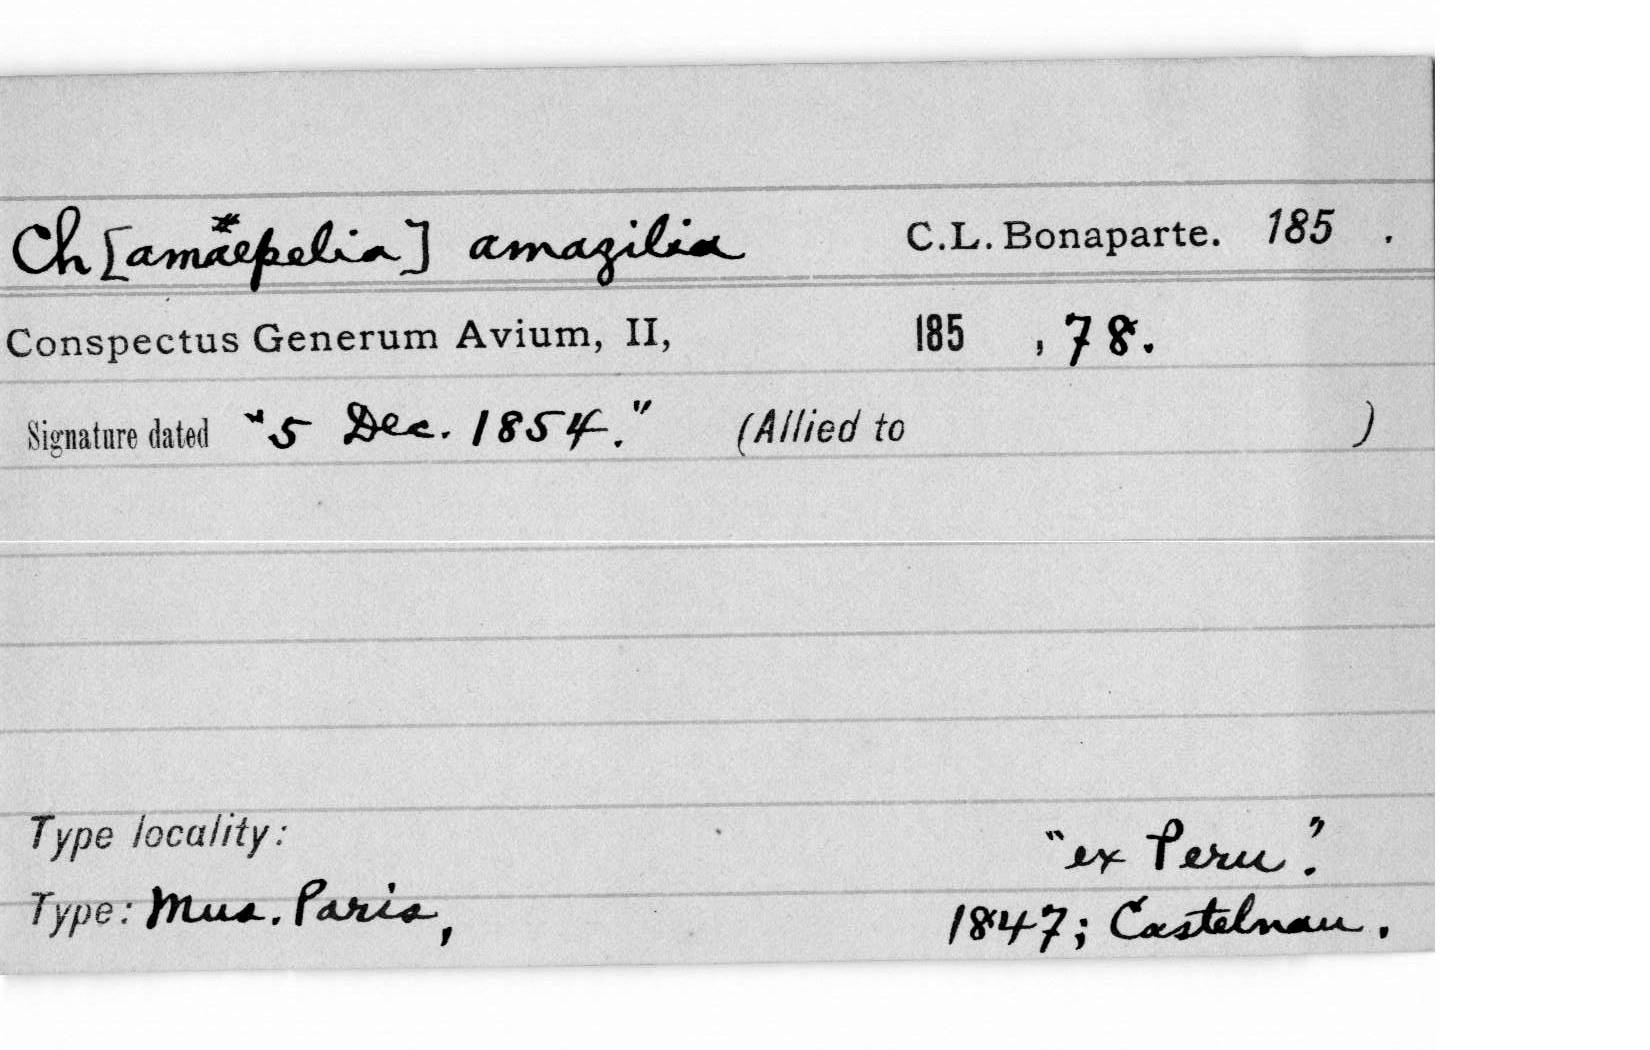 Ch[amaepelia] amazilia C.L. Bonaparte. 185 .
Conspectus Generum Avium, II, 185 , 78.
Signature dated "5 Dec. 1854." (Allied to )
Type locality: "ex Peru".
Type: Mus. Paris, 1847; Castelnau.